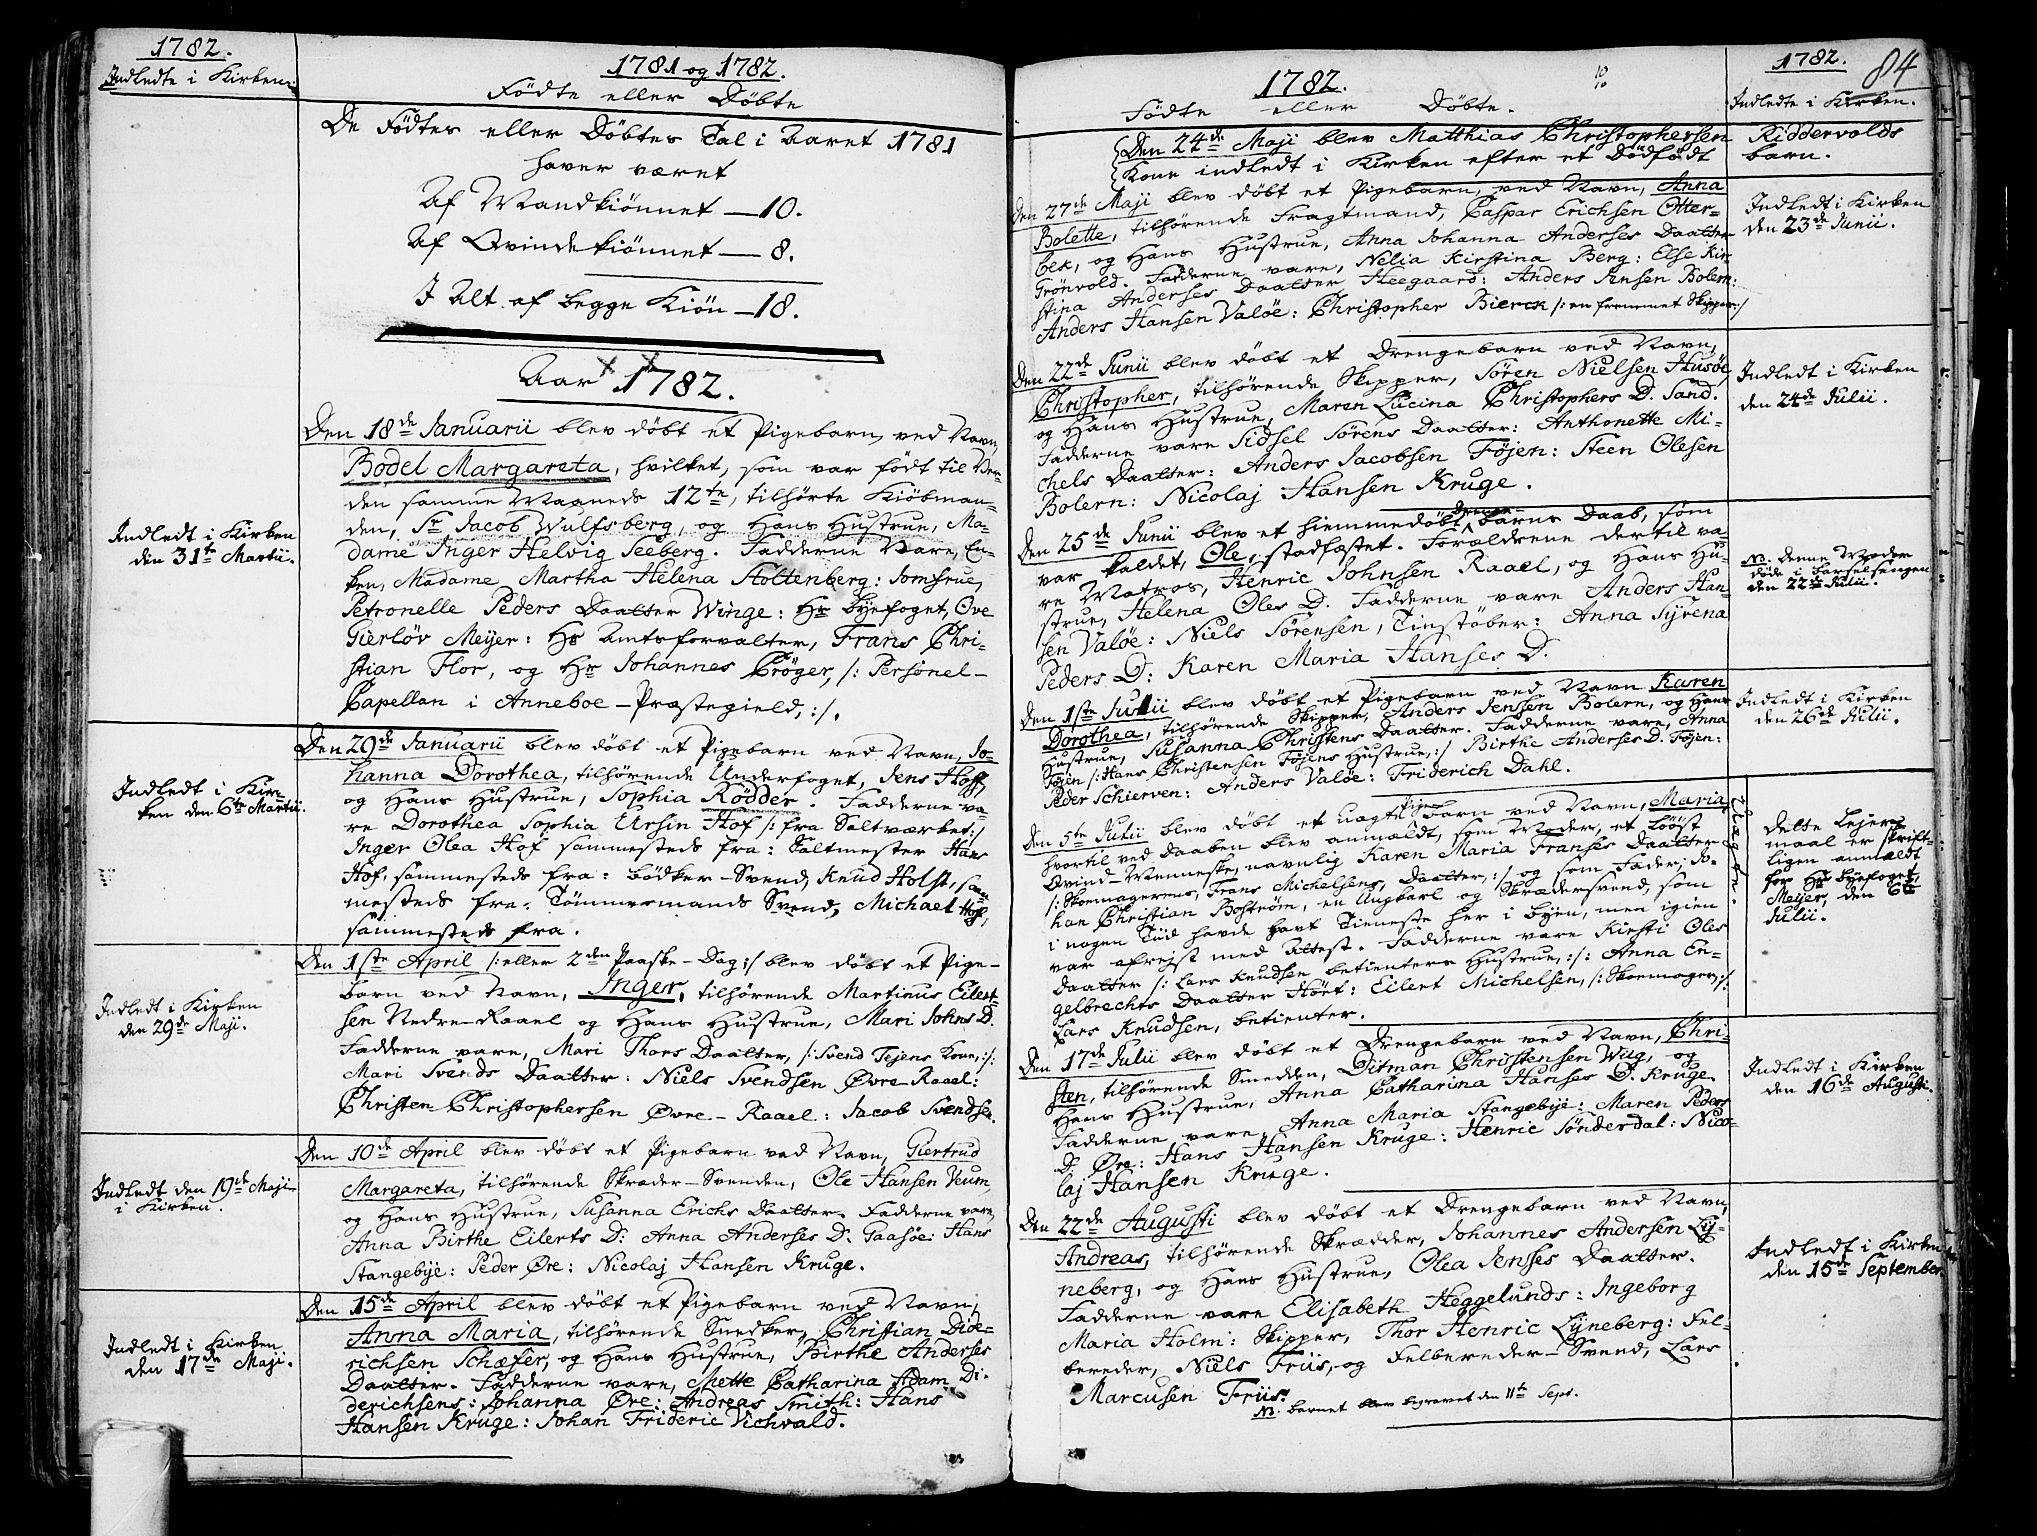 1782.
Indledte i Kirken.
1781 og 1782.
Födte eller Döbte
De Födtes eller Döbtes Tal i Aaret 1781
haver været
Af Mandkiönnet — 10.
Af Qvindekiönnet — 8.
I Alt af begge Kiön — 18.
Aar 1782.
Den 18de Januarii blev döbt et Pigebarn, ved Navn,
Bodel Margareta, hvilket, som var födt til Ver-
den samme Maaneds 12te, tilhörte Kiöbman-
den, Sr Jacob Wulfsberg, og Hans Hustrue, Ma-
dame Inger Helvig Seeberg. Fadderne Vare, En-
ken, Madame Martha Helena Stoltenberg: Jomfrue,
Petronelle Peders Daatter Winge: Hr Byefoget, Ove
Gierlöv Meyer: Hr Amtsforvalter, Frans Chri-
stian Flor, og Hr Johannes Cröger, /: Personel-
Capellan i Anneboe-Præstegield, :/.
Indledt i Kirken
den 31te Martii.
Den 29de Januarii blev döbt et Pigebarn ved Navn, Jo-
hanna Dorothea, tilhörende Underfoget, Jens Hoff,
og Hans Hustrue, Sophia Rödder. Fadderne va-
re Dorothea Sophia Ursin Hof /: fra Saltværket:/
Inger Olea Hof sammesteds fra: Saltmester Hans
Hof, sammesteds fra: Bödker-Svend, Knud Holst, sam-
mesteds fra: Tömmermands Svend, Michael Hof,
sammesteds fra.
Indledt i Kir-
ken den 6te Martii.
Den 1ste April /: eller 2den Paaske-Dag :/ blev döbt et Pige-
barn ved Navn, Inger, tilhörende Martinus Eilert-
sen Nedre-Raael og Hans Hustrue, Mari Johns D.
Fadderne vare, Mari Thors Daatter, /: Svend Tejens Kone, :/:
Mari Svends Daatter: Niels Svendsen Øvre-Raael:
Christen Christophersen Øvre-Raael: Jacob Svendsen.
Indledt i Kirken
den 29de Maji.
Den 10de April blev döbt et Pigebarn ved Navn, Giertrud
Margareta, tilhörende Skræder-Svenden, Ole Hansen Veum,
og Hans Hustrue, Susanna Erichs Daatter. Fadderne vare,
Anna Birthe Eilerts D: Anna Anderses D. Gaasöe: Hans
Stangebÿe: Peder Øre: Nicolaj Hansen Kruge.
Indledt den 19de Maji
i Kirken.
Den 15de April blev döbt et Pigebarn ved Navn,
Anna Maria, tilhörende Snedker, Christian Dide-
richsen Schæfer, og Hans Hustrue, Birthe Anderses
Daatter. Fadderne vare, Mette Catharina Adam Di-
derichsens: Johanna Øre: Andreas Smith: Hans
Hansen Kruge: Johan Frideric Vichvald.
Indledt i Kirken
den 17de Maji.
1782.
Födte eller Döbte.
1782.
84
Indledte i Kirken.
Den 24de Maji blev Matthias Christophersen
Kone indledt i Kirken efter et Dödfödt
Riddervolds
barn.
Den 27de Maji blev döbt et Pigebarn, ved Navn, Anna
Bolette, tilhörende Fragtmand, Caspar Erichsen Otter-
bek, og Hans Hustrue, Anna Johanna Anderses Daatter
Grönvold. Fadderne vare, Nelia Kirstina Berg: Else Kir-
stina Anderses Daatter Heegaard: Anders Jensen Bolern:
Anders Hansen Valöe: Christopher Bierck /: en fremmet Skipper:/
Indledt i Kirken
den 23de Junii.
Den 22de Junii blev döbt et Drengebarn ved Navn,
Christopher, tilhörende Skipper, Sören Nielsen Husöe,
og Hans Hustrue, Maren Lucina Christophers D. Sand.
Fadderne vare Sidsel Sörens Daatter: Anthonette Mi-
chels Daatter: Anders Jacobsen Föjen: Steen Olesen
Bolern: Nicolaj Hansen Kruge.
Indledt i Kirken
den 24de Julii.
Den 25de Junii blev et hiemmedöbt Drenge-barns Daab, som
var kaldet, Ole, stadfæstet. Forældrene dertil va-
re Matros, Henric Johnsen Raael, og Hans Hu-
strue, Helena Oles D. Fadderne vare Anders Han-
sen Valöe: Niels Sörensen, Tinstöber: Anna Syrena
Peders D: Karen Maria Hanses D.
NB. Denne Moder
döde i Barselsengen
den 22de Julii.
Den 1ste Julii blev döbt et Pigebarn ved Navn Karen
Dorothea, tilhörende Skipper, Anders Jensen Bolern, og Hans
Hustrue, Susanna Christens Daatter. Fadderne vare, Anna
Föjen /: Hans Christensen Föjens Hustrue, :/ Birthe Anderses D. Föjen:
Peder Schierven: Anders Valöe: Friderich Dahl.
Indledt i Kirken
den 26de Julii.
Den 5te Julii blev döbt et uægte Pige-barn ved Navn, Maria,
hvortil ved Daaben blev anmældt, som Moder, et lööst
Qvind-Menneske, navnlig Karen Maria Franses Daatter
/: Skoemagerens, Frans Michelsens, Daatter, :/ og som Fader, Jo-
han Christian Boström, en Ungkarl og Skrædersvend, som
i nogen Tiid havde havt Tieneste her i Byen, men igien
var afrejst med Attest. Fadderne vare Kirsti Oles
Daatter /: Lars Knudsen betienters Hustrue, :/: Anna En-
gelbrechts Daatter Hört: Eilert Michelsen, /: Skoemager, :/:
Lars Knudsen, betienter.
Uægte.
Dette Lejer-
maal er skrift-
ligen anmældt
for Hr Byefoget,
Meyer, den 6te
Julii.
Den 17de Julii blev döbt et Drengebarn ved Navn, Chri-
sten, tilhörende Smedden, Ditman Christensen Wiig, og
Hans Hustrue, Anna Catharina Hanses D. Kruge.
Fadderne vare, Anna Maria Stangebÿe: Maren Peders
D. Øre: Hans Hansen Kruge: Henric Sönderdal: Nico-
laj Hansen Kruge.
Indledt i Kirken
den 16de Augusti.
Den 22de Augusti blev döbt et Drengebarn ved Navn,
Andreas, tilhörende Skrædder, Johannes Andersen Ly-
neberg, og Hans Hustrue, Olea Jenses Daatter.
Fadderne vare Elisabeth Heggelunds: Ingeborg
Maria Holm: Skipper, Thor Henric Lÿneberg: Fel-
bereder, Niels Friis, og Felbereder-Svend, Lars
Marcusen Friis.
NB. barnet blev begravet den 11te Sept.
Indledt i Kirken
den 15de September.